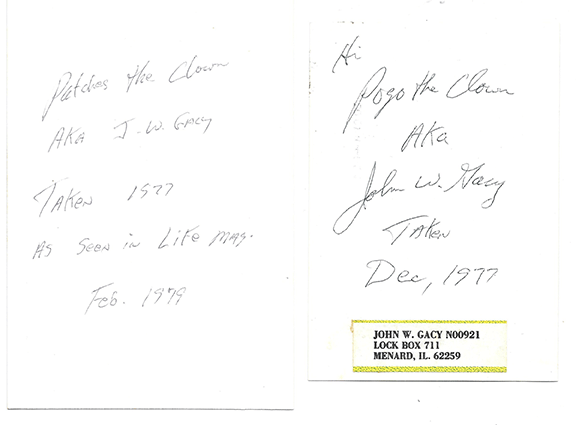 Patches the Clown
AKA J.W. Gacy
TAKEN 1977
AS SEEN IN LIFE MAG.
Feb. 1979
Hi
Pogo the Clown
AKA
John W. Gacy
TAKEN
Dec, 1977
JOHN W. GACY N00921
LOCK BOX 711
MENARD, IL. 62259